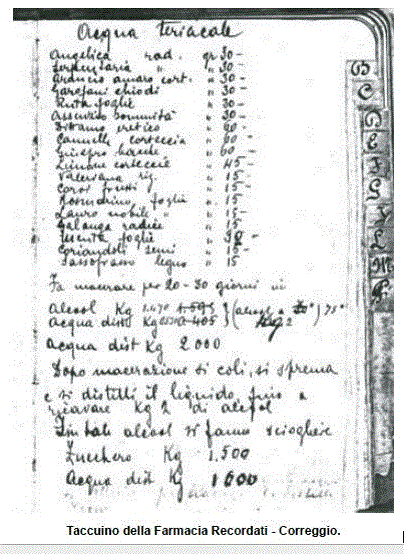 Acqua teriacale
Angelica rad. gr 30 -
Serpentaria " " 30 -
Arancio amaro cort. " 30 -
Garofani chiodi " 30 -
Ruta foglie " 30 -
Assenzio sommità " 30 -
Dittamo cretico " 20 -
Cannella corteccia " 60 -
Ginepro bacche " 60 -
Limone corteccie " 45 -
Valeriana rig. " 15 -
" 15 -
Rosmarino foglie " 15 -
Lauro nobile " " 15 -
Galanga radice " 15 -
Menta foglie "
Coriandoli semi " 15 -
Sassofrasso legno " 15
Fa macerare per 20-30 giorni in
alcool Kg 1.595 (alcool a
acqua dist Kg 0.405 Kg 2
acqua dist Kg 2000
Dopo macerazione si coli, si sprema
e si distilli il liquido fino a
ricavare Kg 2 di alcool
In tale alcool si fanno sciogliere
Zucchero Kg 1.500
Acqua dist Kg 1600
B
C
D
E
F
L
M
Taccuino della Farmacia Recordati - Correggio.